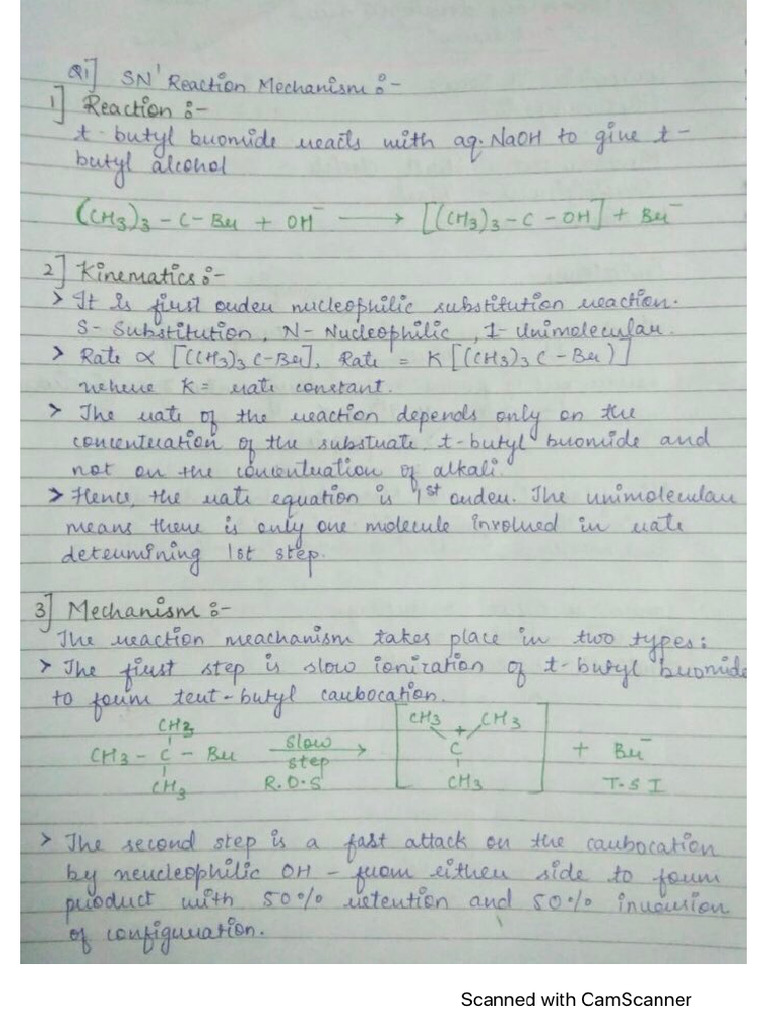 Q1] SN¹ Reaction Mechanism :-
1] Reaction :-
t-butyl bromide reacts with aq. NaOH to give t-
butyl alcohol
(CH3)3 - C - Br + OH⁻ ⟶ [(CH3)3 - C - OH] + Br⁻
2] Kinematics :-
> It is first order nucleophilic substitution reaction.
S - Substitution, N - Nucleophilic, 1 - Unimolecular.
> Rate ∝ [(CH3)3 C-Br], Rate = K [(CH3)3 C - Br)]
where K = rate constant.
> The rate of the reaction depends only on the
concenteration of the substrate t-butyl bromide and
not on the concentration of alkali.
> Hence, the rate equation is 1st order. The unimolecular
means there is only one molecule involued in rate
determining 1st step.
3] Mechanism :-
The reaction meachanism takes place in two types:
> The first step is slow ionization of t-butyl bromide
to form tert-butyl carbocation.
CH3 CH3 CH3
CH3 - C - Br slow step ⟶ C + + Br⁻
CH3 R.D.S CH3 T.S I
> The second step is a fast attack on the carbocation
by neucleophilic OH - from either side to form
product with 50% retention and 50% inversion
of configuration.
Scanned with CamScanner